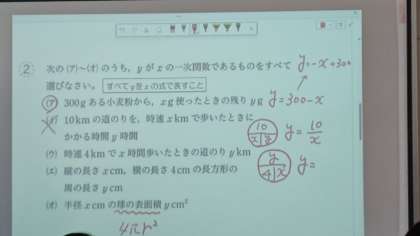 ② 次の(ア)~(オ)のうち,yがxの一次関数であるものをすべて
選びなさい。 すべてyをxの式で表すこと
y=-x+300
(ア) 300gある小麦粉から,xg使ったときの残りyg
y=300-x
(イ) 10kmの道のりを,時速xkmで歩いたときに
かかる時間y時間
10
x
y=10/x
(ウ) 時速4kmでx時間歩いたときの道のりykm
y
4 x
y=
(エ) 縦の長さxcm,横の長さ4cmの長方形の
周の長さycm
(オ) 半径xcmの球の表面積ycm²
4πr²